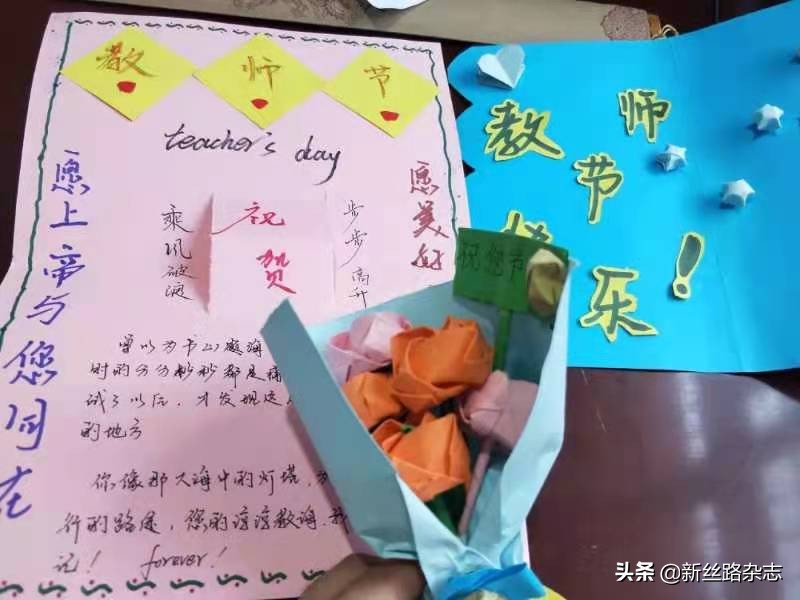 教师节
teacher's day
愿上帝与您同在
愿美好
乘风破浪
祝贺
步步高升
曾以为书山
时的分分秒秒都是
试了以后，才发现这
的地方
你像那大海中的灯塔，为
行的路途，您的谆谆教诲，我
记！ forever!
教师节
乐！
祝您节
头条 @新丝路杂志